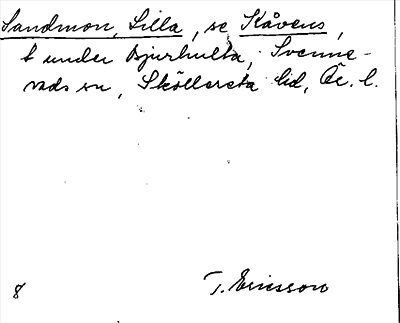 Sandmon, Lilla, se Kåvens,
t under Bjurhulta, Svenne-
vads sn, Sköllersta hd, Ör. l.
8 T. Ericsson